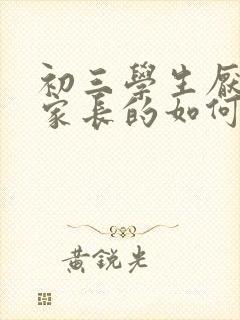 初三學生厭
家長的如何
黃銳光